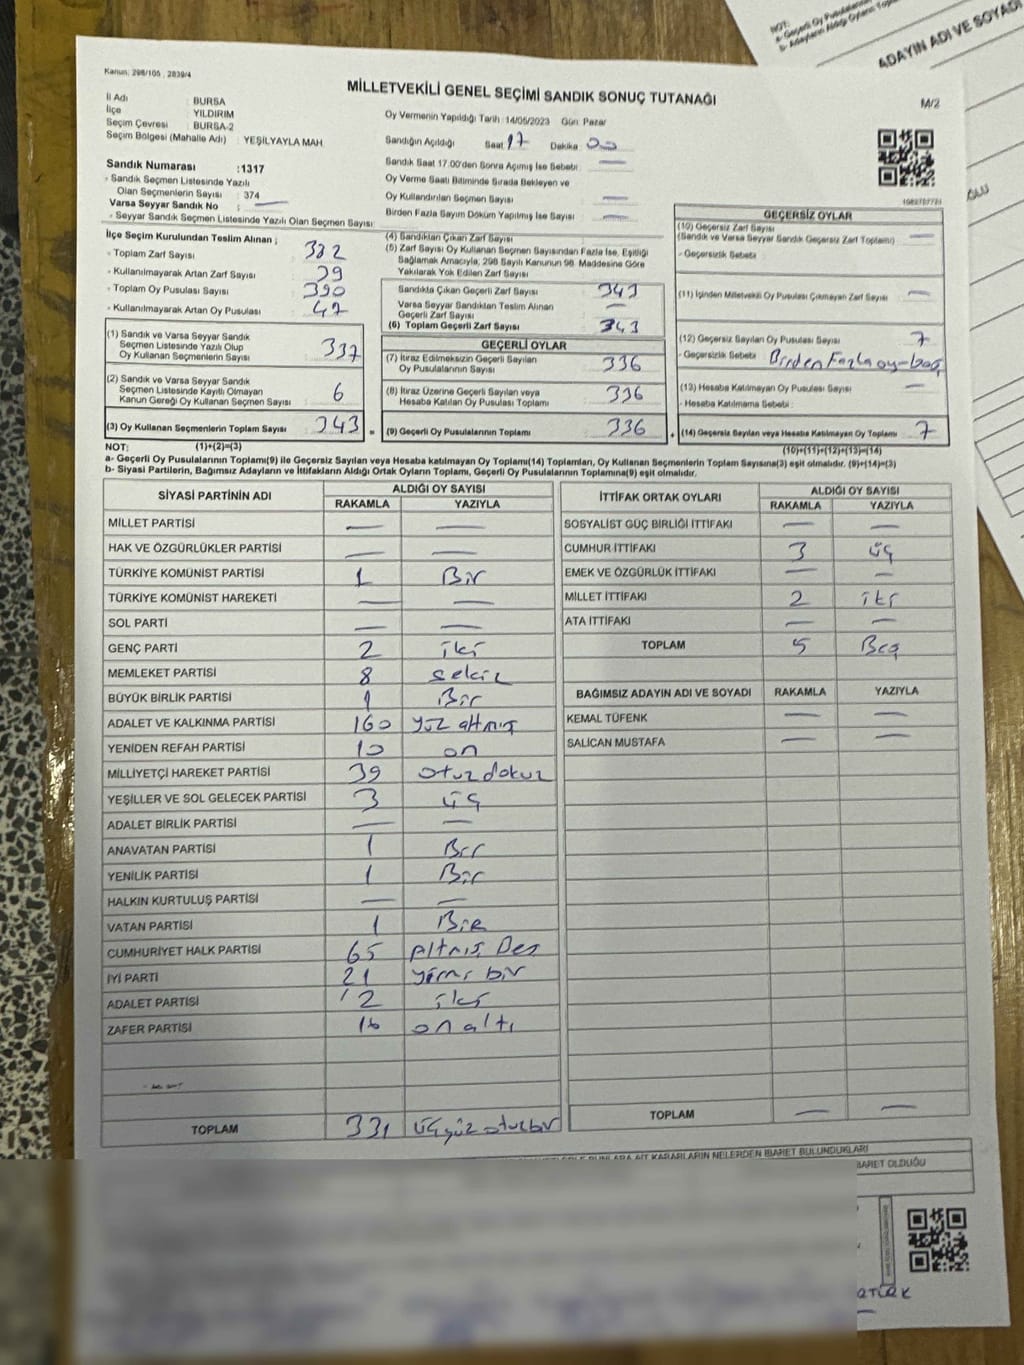 NOT:
a- Geçerli Oy Pusulalarının
b- Adayların Aldığı Oyların Toplamı
ADAYIN ADI VE SOYADI
Kanun: 298/105 , 2839/4
MİLLETVEKİLİ GENEL SEÇİMİ SANDIK SONUÇ TUTANAĞI
M/2
İl Adı : BURSA
İlçe : YILDIRIM
Seçim Çevresi : BURSA-2
Seçim Bölgesi (Mahalle Adı) : YEŞİLYAYLA MAH.
Oy Vermenin Yapıldığı Tarih :14/05/2023 Gün: Pazar
Sandığın Açıldığı Saat 17 Dakika 00
Sandık Saat 17.00'den Sonra Açılmış İse Sebebi : —
Oy Verme Saati Bitiminde Sırada Bekleyen ve
Oy Kullandırılan Seçmen Sayısı : —
Birden Fazla Sayım Döküm Yapılmış İse Sayısı : —
Sandık Numarası :1317
- Sandık Seçmen Listesinde Yazılı
Olan Seçmenlerin Sayısı : 374
Varsa Seyyar Sandık No : —
- Seyyar Sandık Seçmen Listesinde Yazılı Olan Seçmen Sayısı:
İlçe Seçim Kurulundan Teslim Alınan ;
- Toplam Zarf Sayısı : 382
- Kullanılmayarak Artan Zarf Sayısı : 39
- Toplam Oy Pusulası Sayısı : 390
- Kullanılmayarak Artan Oy Pusulası : 47
(1) Sandık ve Varsa Seyyar Sandık
Seçmen Listesinde Yazılı Olup
Oy Kullanan Seçmenlerin Sayısı : 337
(2) Sandık ve Varsa Seyyar Sandık
Seçmen Listesinde Kayıtlı Olmayan
Kanun Gereği Oy Kullanan Seçmen Sayısı : 6
(3) Oy Kullanan Seçmenlerin Toplam Sayısı : 343 =
(4) Sandıktan Çıkan Zarf Sayısı
(5) Zarf Sayısı Oy Kullanan Seçmen Sayısından Fazla İse, Eşitliği
Sağlamak Amacıyla, 298 Sayılı Kanunun 98. Maddesine Göre
Yakılarak Yok Edilen Zarf Sayısı
Sandıkta Çıkan Geçerli Zarf Sayısı : 343
Varsa Seyyar Sandıktan Teslim Alınan
Geçerli Zarf Sayısı : —
(6) Toplam Geçerli Zarf Sayısı : 343
GEÇERLİ OYLAR
(7) İtiraz Edilmeksizin Geçerli Sayılan
Oy Pusulalarının Sayısı : 336
(8) İtiraz Üzerine Geçerli Sayılan veya
Hesaba Katılan Oy Pusulası Toplamı : 336
(9) Geçerli Oy Pusulalarının Toplamı : 336 +
GEÇERSİZ OYLAR
(10) Geçersiz Zarf Sayısı
(Sandık ve Varsa Seyyar Sandık Geçersiz Zarf Toplamı) : —
- Geçersizlik Sebebi :
(11) İçinden Milletvekili Oy Pusulası Çıkmayan Zarf Sayısı : —
(12) Geçersiz Sayılan Oy Pusulası Sayısı : 7
- Geçersizlik Sebebi : Birden Fazla oy-
(13) Hesaba Katılmayan Oy Pusulası Sayısı : —
- Hesaba Katılmama Sebebi :
(14) Geçersiz Sayılan veya Hesaba Katılmayan Oy Toplamı : 7
NOT: (1)+(2)=(3) (10)+(11)+(12)+(13)=(14)
a- Geçerli Oy Pusulalarının Toplamı(9) ile Geçersiz Sayılan veya Hesaba katılmayan Oy Toplamı(14) Toplamları, Oy Kullanan Seçmenlerin Toplam Sayısına(3) eşit olmalıdır. (9)+(14)=(3)
b- Siyasi Partilerin, Bağımsız Adayların ve İttifakların Aldığı Ortak Oyların Toplamı, Geçerli Oy Pusulalarının Toplamına(9) eşit olmalıdır.
SİYASİ PARTİNİN ADI ALDIĞI OY SAYISI
RAKAMLA YAZIYLA
MİLLET PARTİSİ — —
HAK VE ÖZGÜRLÜKLER PARTİSİ — —
TÜRKİYE KOMÜNİST PARTİSİ 1 Bir
TÜRKİYE KOMÜNİST HAREKETİ — —
SOL PARTİ — —
GENÇ PARTİ 2 iki
MEMLEKET PARTİSİ 8 sekiz
BÜYÜK BİRLİK PARTİSİ 1 Bir
ADALET VE KALKINMA PARTİSİ 160 yüz altmış
YENİDEN REFAH PARTİSİ 10 on
MİLLİYETÇİ HAREKET PARTİSİ 39 otuz dokuz
YEŞİLLER VE SOL GELECEK PARTİSİ 3 üç
ADALET BİRLİK PARTİSİ — —
ANAVATAN PARTİSİ 1 Bir
YENİLİK PARTİSİ 1 Bir
HALKIN KURTULUŞ PARTİSİ — —
VATAN PARTİSİ 1 Bir
CUMHURİYET HALK PARTİSİ 65 Altmış Beş
İYİ PARTİ 21 yirmi bir
ADALET PARTİSİ 2 iki
ZAFER PARTİSİ 16 on altı
TOPLAM 331 üçyüz otuzbir
İTTİFAK ORTAK OYLARI ALDIĞI OY SAYISI
RAKAMLA YAZIYLA
SOSYALİST GÜÇ BİRLİĞİ İTTİFAKI — —
CUMHUR İTTİFAKI 3 üç
EMEK VE ÖZGÜRLÜK İTTİFAKI — —
MİLLET İTTİFAKI 2 iki
ATA İTTİFAKI — —
TOPLAM 5 Beş
BAĞIMSIZ ADAYIN ADI VE SOYADI RAKAMLA YAZIYLA
KEMAL TÜFENK — —
SALİCAN MUSTAFA — —
TOPLAM — —
KARARLARIN NELERDEN İBARET BULUNDUKLARI
İBARET OLDUĞU